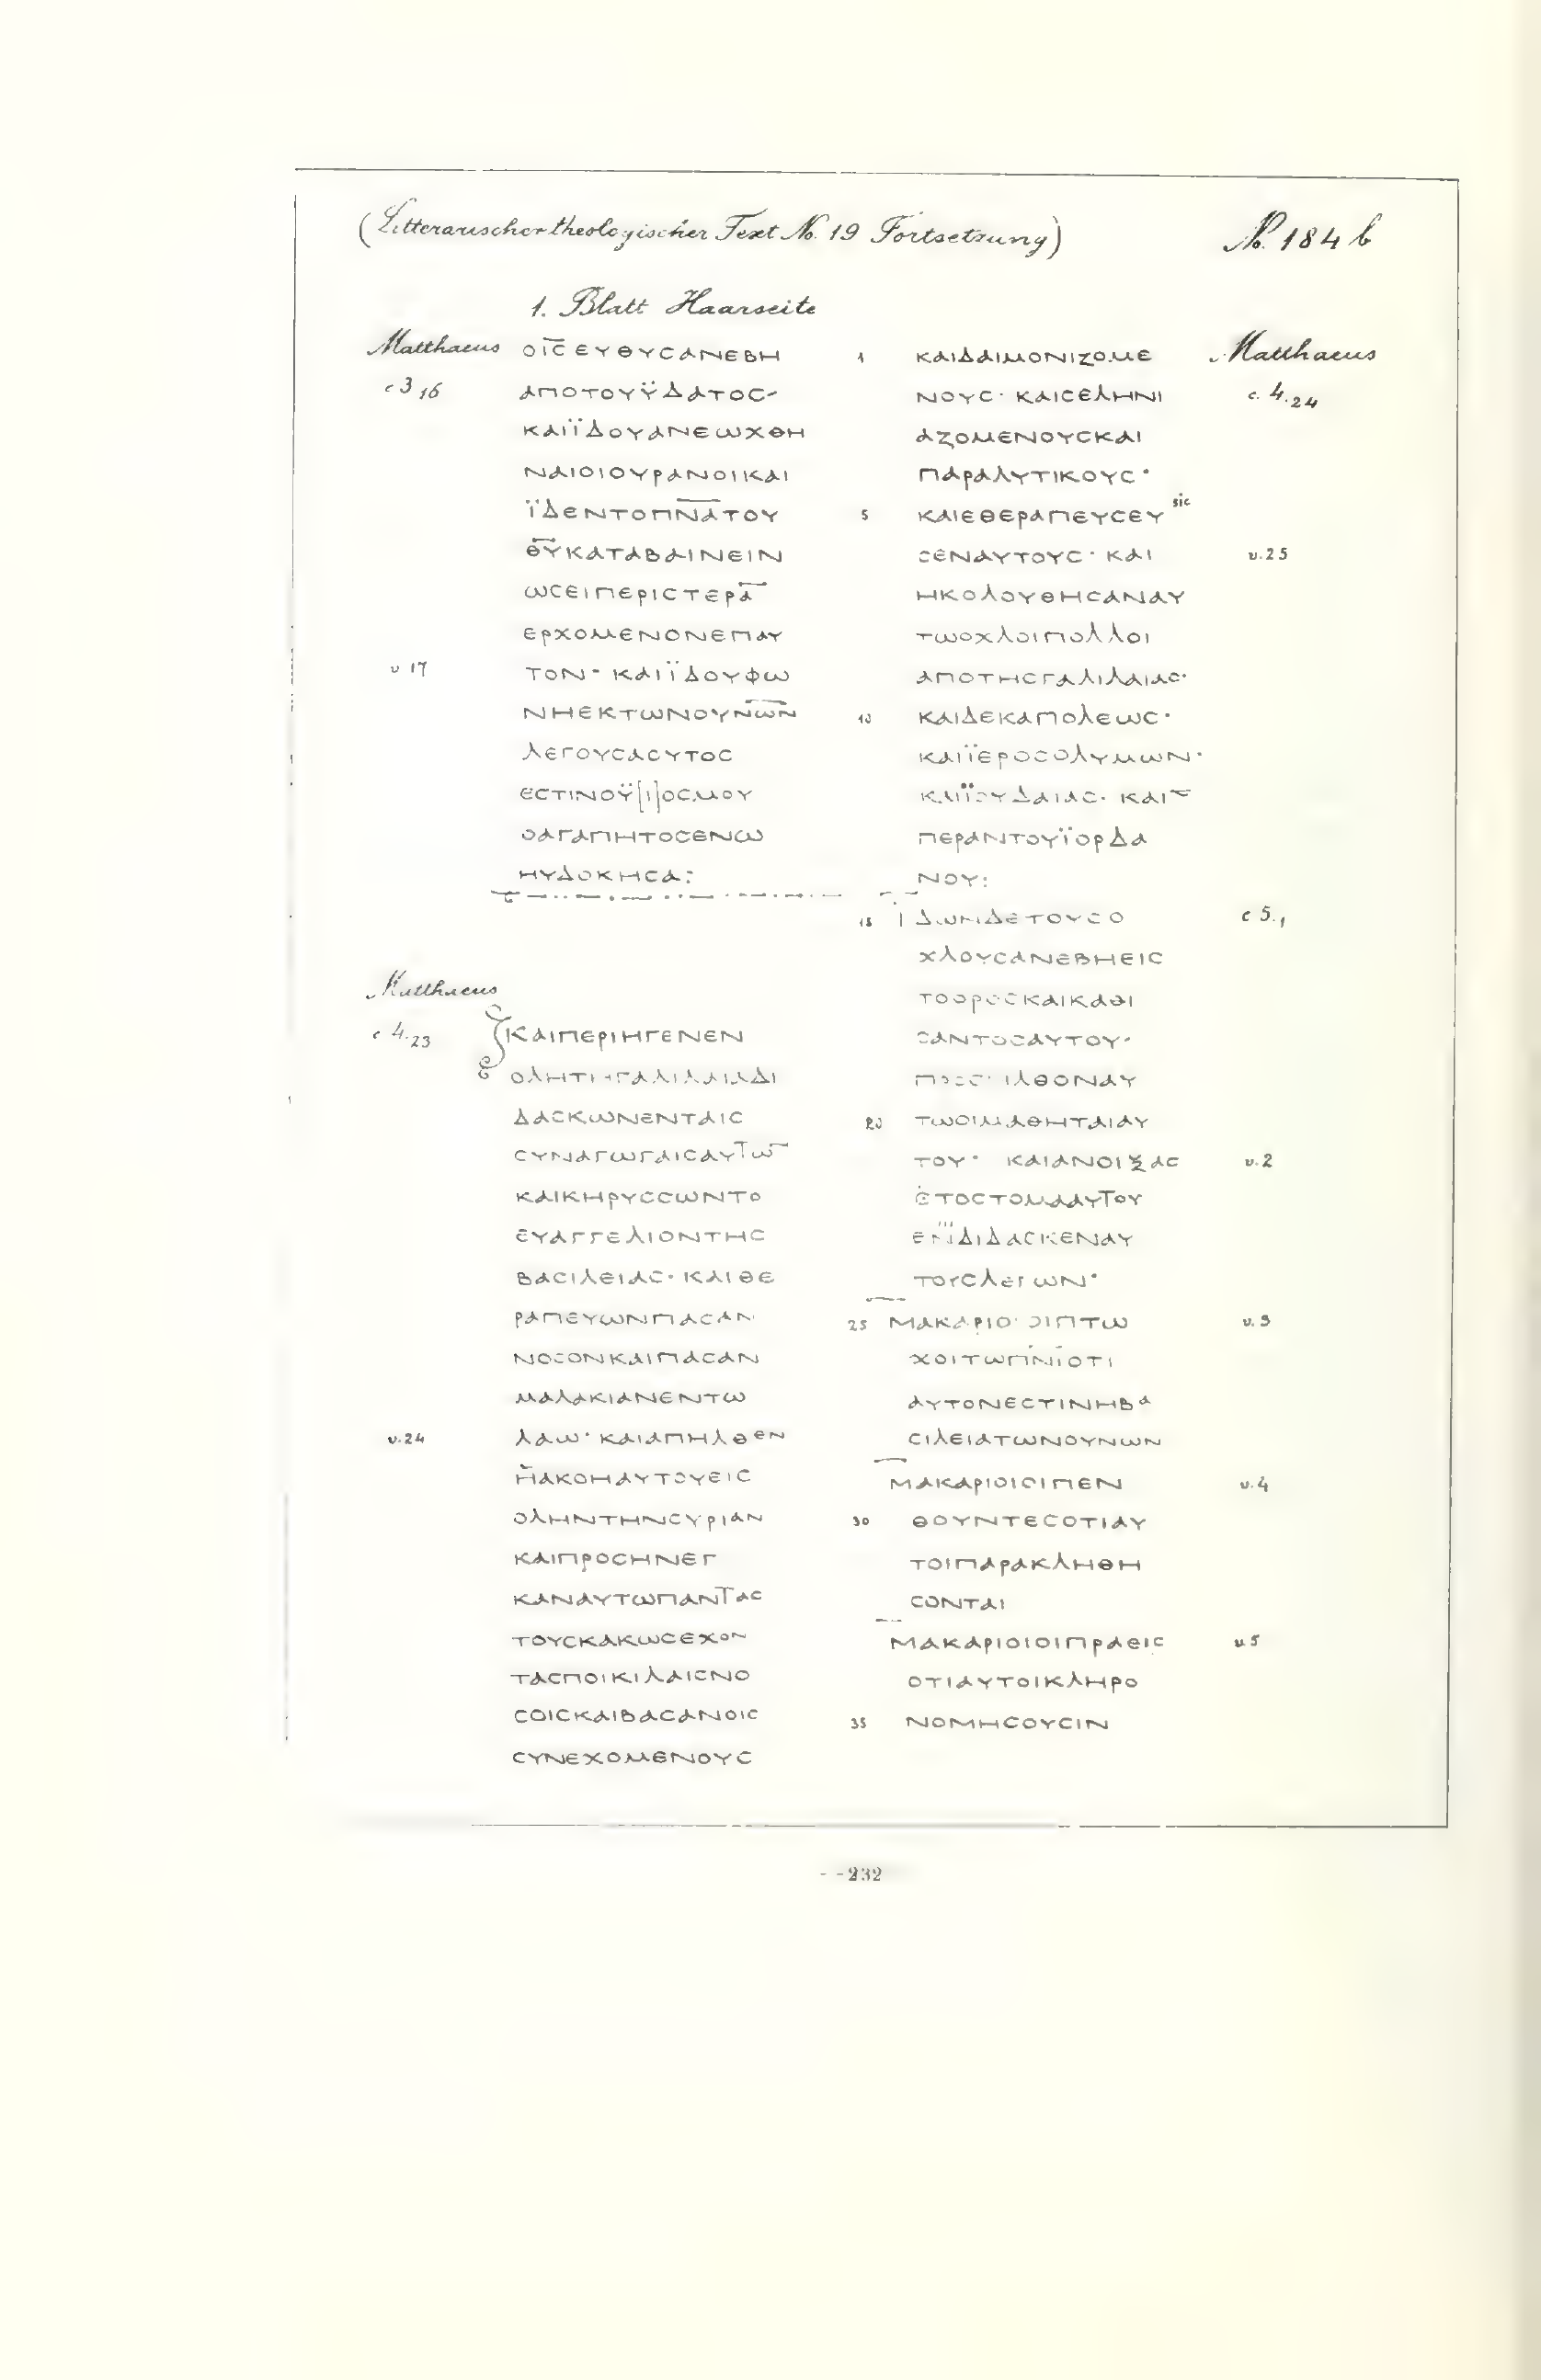 (Litterarischer theologischer Text No. 19 Fortsetzung)
No. 184 b
1. Blatt Haarseite
Matthaeus ΟΙ̅C̅ΕΥΘΥCΑΝΕΒΗ
c 3 16 ΑΠΟΤΟΥΫΔΑΤΟC-
ΚΑΙΪΔΟΥΑΝΕΩΧΘΗ
ΝΑΙΟΙΟΥΡΑΝΟΙΚΑΙ
ΪΔΕΝΤΟΠ̅Ν̅Α̅ΤΟΥ
Θ̅Υ̅ΚΑΤΑΒΑΙΝΕΙΝ
ΩCΕΙΠΕΡΙCΤΕΡΑ̅
ΕΡΧΟΜΕΝΟΝΕΠΑΥ
v 17 ΤΟΝ· ΚΑΙΪΔΟΥΦΩ
ΝΗΕΚΤΩΝΟΥΝ̅Ω̅Ν̅
ΛΕΓΟΥCΑCΥΤΟC
ΕCΤΙΝΟΫ[Ι]ΟCΜΟΥ
ΟΑΓΑΠΗΤΟCΕΝΩ
ΗΥΔΟΚΗCΑ:
Matthaeus
c 4.23 ΚΑΙΠΕΡΙΗΓΕΝΕΝ
ΟΛΗΤΗΓΑΛΙΛΑΙΑΔΙ
ΔΑCΚΩΝΕΝΤΑΙC
CΥΝΑΓΩΓΑΙCΑΥΤΩ̅
ΚΑΙΚΗΡΥCCΩΝΤΟ
ΕΥΑΓΓΕΛΙΟΝΤΗC
ΒΑCΙΛΕΙΑC· ΚΑΙΘΕ
ΡΑΠΕΥΩΝΠΑCΑΝ
ΝΟCΟΝΚΑΙΠΑCΑΝ
ΜΑΛΑΚΙΑΝΕΝΤΩ
v. 24 ΛΑΩ· ΚΑΙΑΠΗΛΘΕΝ
ΗΑΚΟΗΑΥΤΟΥΕΙC
ΟΛΗΝΤΗΝCΥΡΙΑΝ
ΚΑΙΠΡΟCΗΝΕΓ
ΚΑΝΑΥΤΩΠΑΝΤΑC
ΤΟΥCΚΑΚΩCΕΧΟΝ
ΤΑCΠΟΙΚΙΛΑΙCΝΟ
CΟΙCΚΑΙΒΑCΑΝΟΙC
CΥΝΕΧΟΜΕΝΟΥC
1 ΚΑΙΔΑΙΜΟΝΙΖΟΜΕ Matthaeus
ΝΟΥC· ΚΑΙCΕΛΗΝΙ c. 4.24
ΑΖΟΜΕΝΟΥCΚΑΙ
ΠΑΡΑΛΥΤΙΚΟΥC·
5 ΚΑΙΕΘΕΡΑΠΕΥCΕΥ sic
CΕΝΑΥΤΟΥC· ΚΑΙ v. 25
ΗΚΟΛΟΥΘΗCΑΝΑΥ
ΤΩΟΧΛΟΙΠΟΛΛΟΙ
ΑΠΟΤΗCΓΑΛΙΛΑΙΑC·
10 ΚΑΙΔΕΚΑΠΟΛΕΩC·
ΚΑΙΪΕΡΟCΟΛΥΜΩΝ·
ΚΑΙΪΟΥΔΑΙΑC· ΚΑΙ
ΠΕΡΑΝΤΟΥΪΟΡΔΑ
ΝΟΥ:
15 ΙΔΩΝΔΕΤΟΥCΟ c 5.1
ΧΛΟΥCΑΝΕΒΗΕΙC
ΤΟΟΡΟCΚΑΙΚΑΘΙ
CΑΝΤΟCΑΥΤΟΥ·
ΠΡΟC·ΙΛΘΟΝΑΥ
20 ΤΩΟΙΜΑΘΗΤΑΙΑΥ
ΤΟΥ· ΚΑΙΑΝΟΙΞΑC v. 2
ΕΤΟCΤΟΜΑΑΥΤΟΥ
ΕΝΙΔΙΔΑCΚΕΝΑΥ
ΤΟΥCΛΕΓΩΝ·
25 ΜΑΚΑΡΙΟ·ΟΙΠΤΩ v. 3
ΧΟΙΤΩΠ̅Ν̅Ι̅ΟΤΙ
ΑΥΤΟΝΕCΤΙΝΗΒΑ
CΙΛΕΙΑΤΩΝΟΥΝΩΝ
ΜΑΚΑΡΙΟΙΟΙΠΕΝ v. 4
30 ΘΟΥΝΤΕCΟΤΙΑΥ
ΤΟΙΠΑΡΑΚΛΗΘΗ
CΟΝΤΑΙ
ΜΑΚΑΡΙΟΙΟΙΠΡΑΕΙC v. 5
ΟΤΙΑΥΤΟΙΚΛΗΡΟ
35 ΝΟΜΗCΟΥCΙΝ
--232